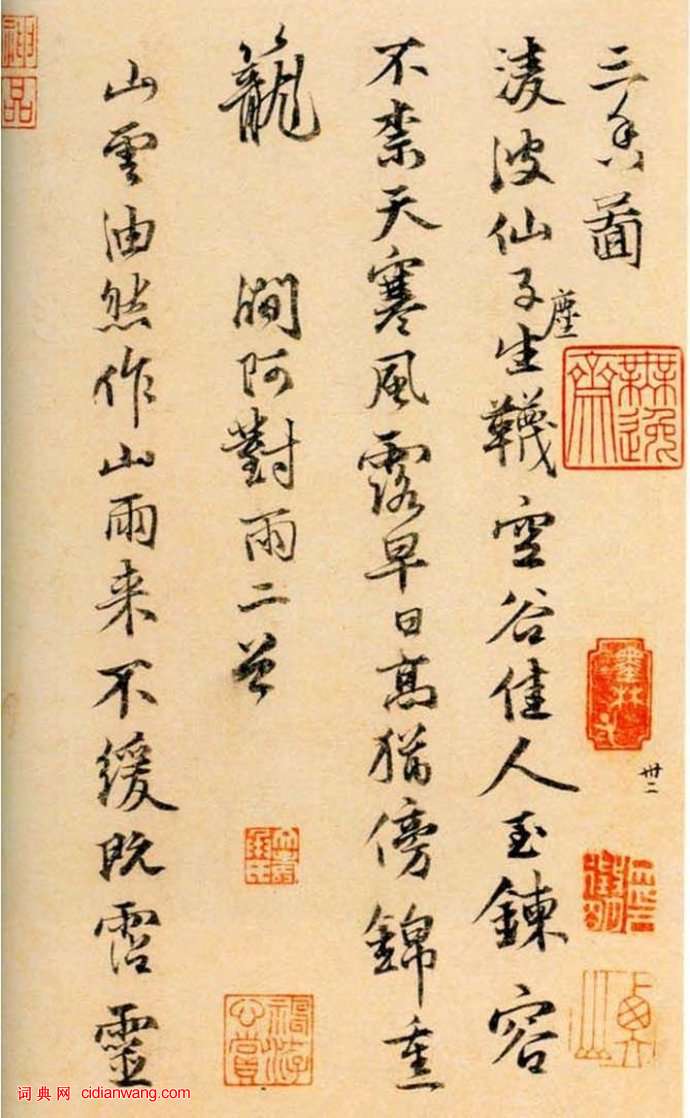 三香圖
淩波仙子生塵韈空谷佳人玉鍊容
卅二
不柰天寒風露早日高猶傍錦熏
籠 澗阿對雨二首
山雲油然作山雨来不緩既霑靈
神品
词典网 cidianwang.com